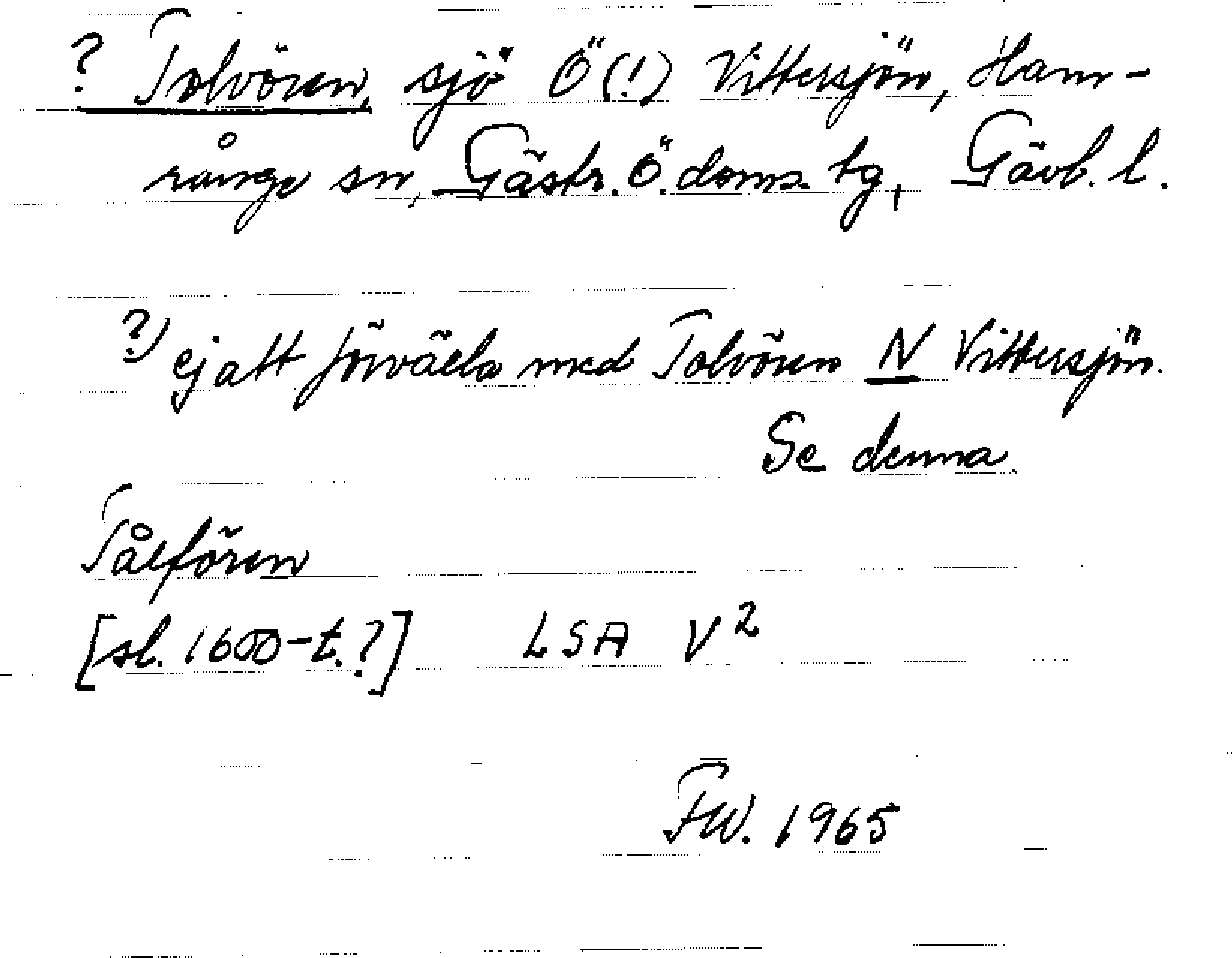 ? Tolvören, sjö Ö(!) Vittersjön, Ham-
rånge sn, Gästr. Ö. doms. tg, Gävb. l.
?) ej att förväxla med Tolvören N Vittersjön.
Se denna
Tålfören
[sl. 1600-t.?] LSA V²
FW. 1965